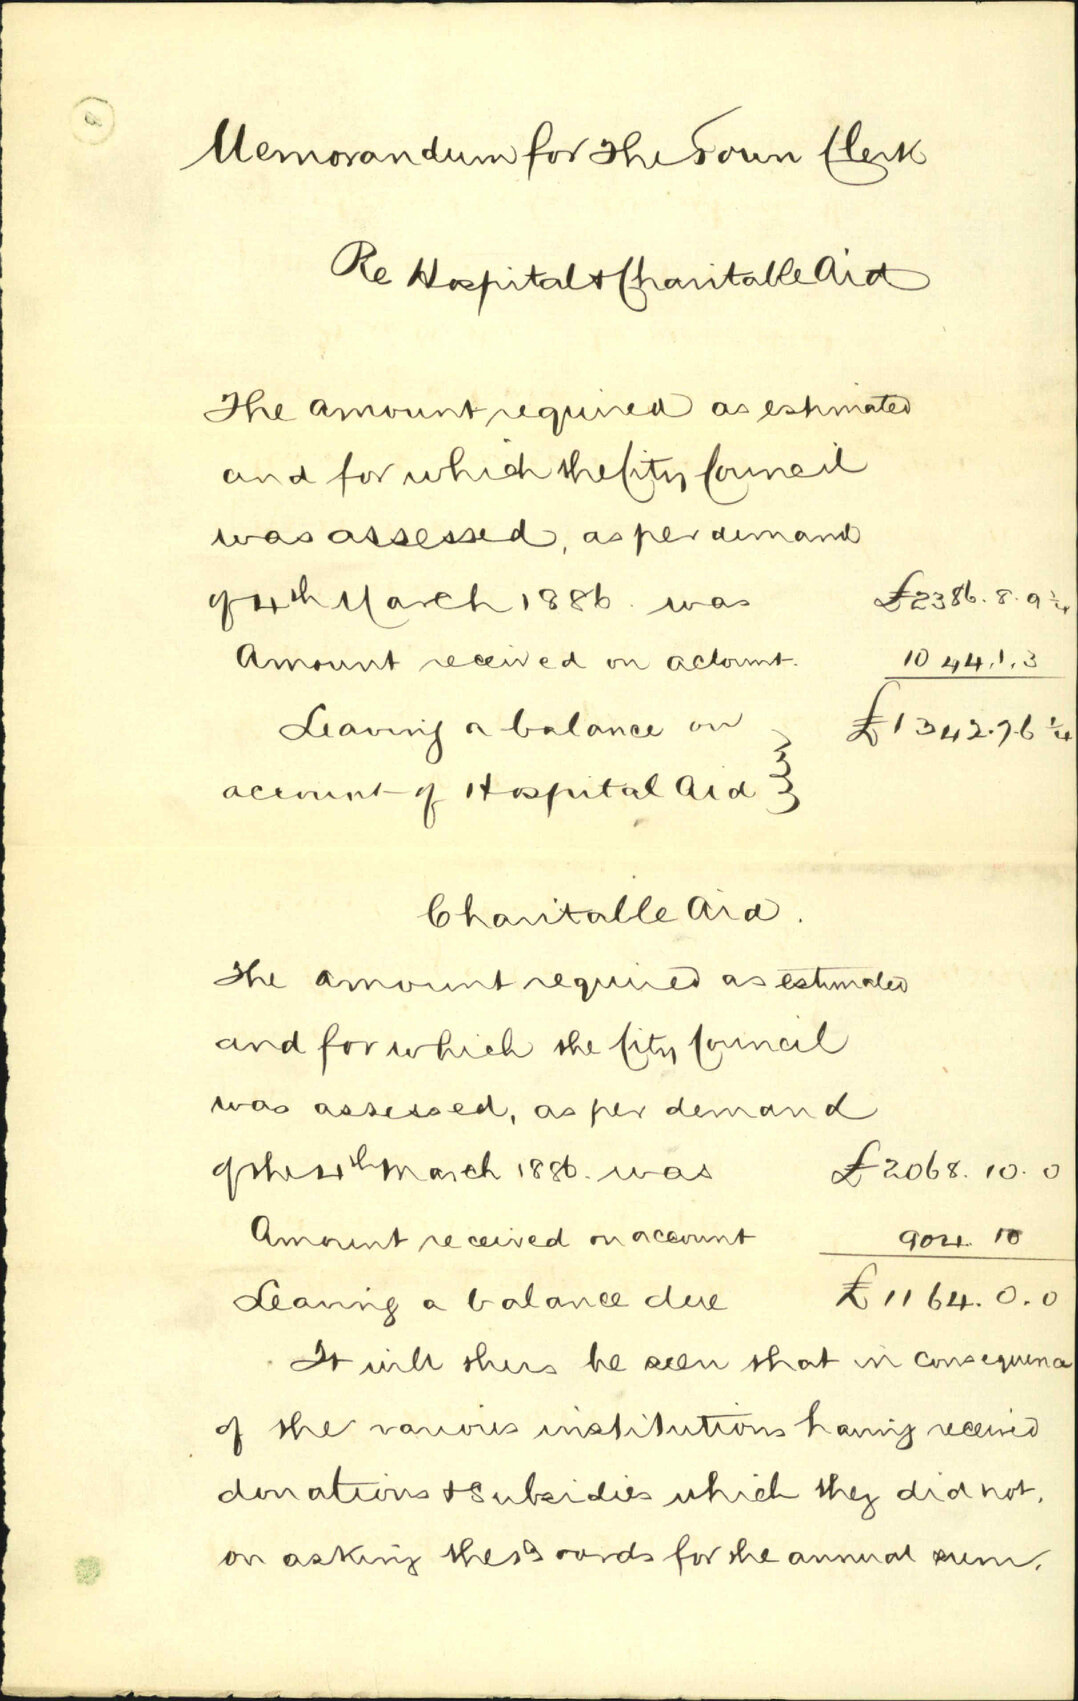 Memorandum for the Town Clerk
Re Hospital & Charitable Aid
The amount required as estimated
and for which the City Council
was assessed, as per demand
of 4th March 1886. was £2386. 8. 9 1/4
Amount received on account. 1044. 1. 3
Leaving a balance on £1342. 7. 6 1/4
account of Hospital Aid }
Charitable Aid.
The amount required as estimated
and for which the City Council
was assessed, as per demand
of the 4th March 1886. was £2068. 10. 0
Amount received on account 904. 10
Leaving a balance due £1164. 0. 0
It will thus be seen that in consequence
of the various institutions having received
donations & Subsidies which they did not,
on asking the Boards for the annual sum,